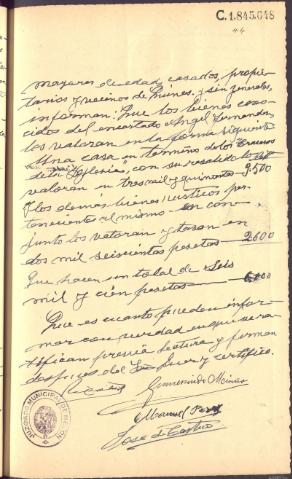 C.1.845.048
44
mayores de edad, casados, propie-
tarios y vecinos de Nimes, y sin generales,
informan: Que los bienes cono-
cidos del encartado Angel Fernandez
los valoran en la forma siguiente
Una casa en termino de
de la Iglesia, con su resalido la
valoran en tres mil y quinientas 3500
Y los demas bienes rusticos per-
tenecientes al mismo en con-
junto los valoran y tasan en
dos mil seiscientas pesetas 2600
Que hacen un total de seis
mil y cien pesetas 6100
Que es cuanto pueden infor-
mar con verdad en que se ra-
tifican previa lectura y firman
despues del Sr. Juez y certifico.
Gumersindo
Manuel
Jose de Castro
JUZGADO MUNICIPAL